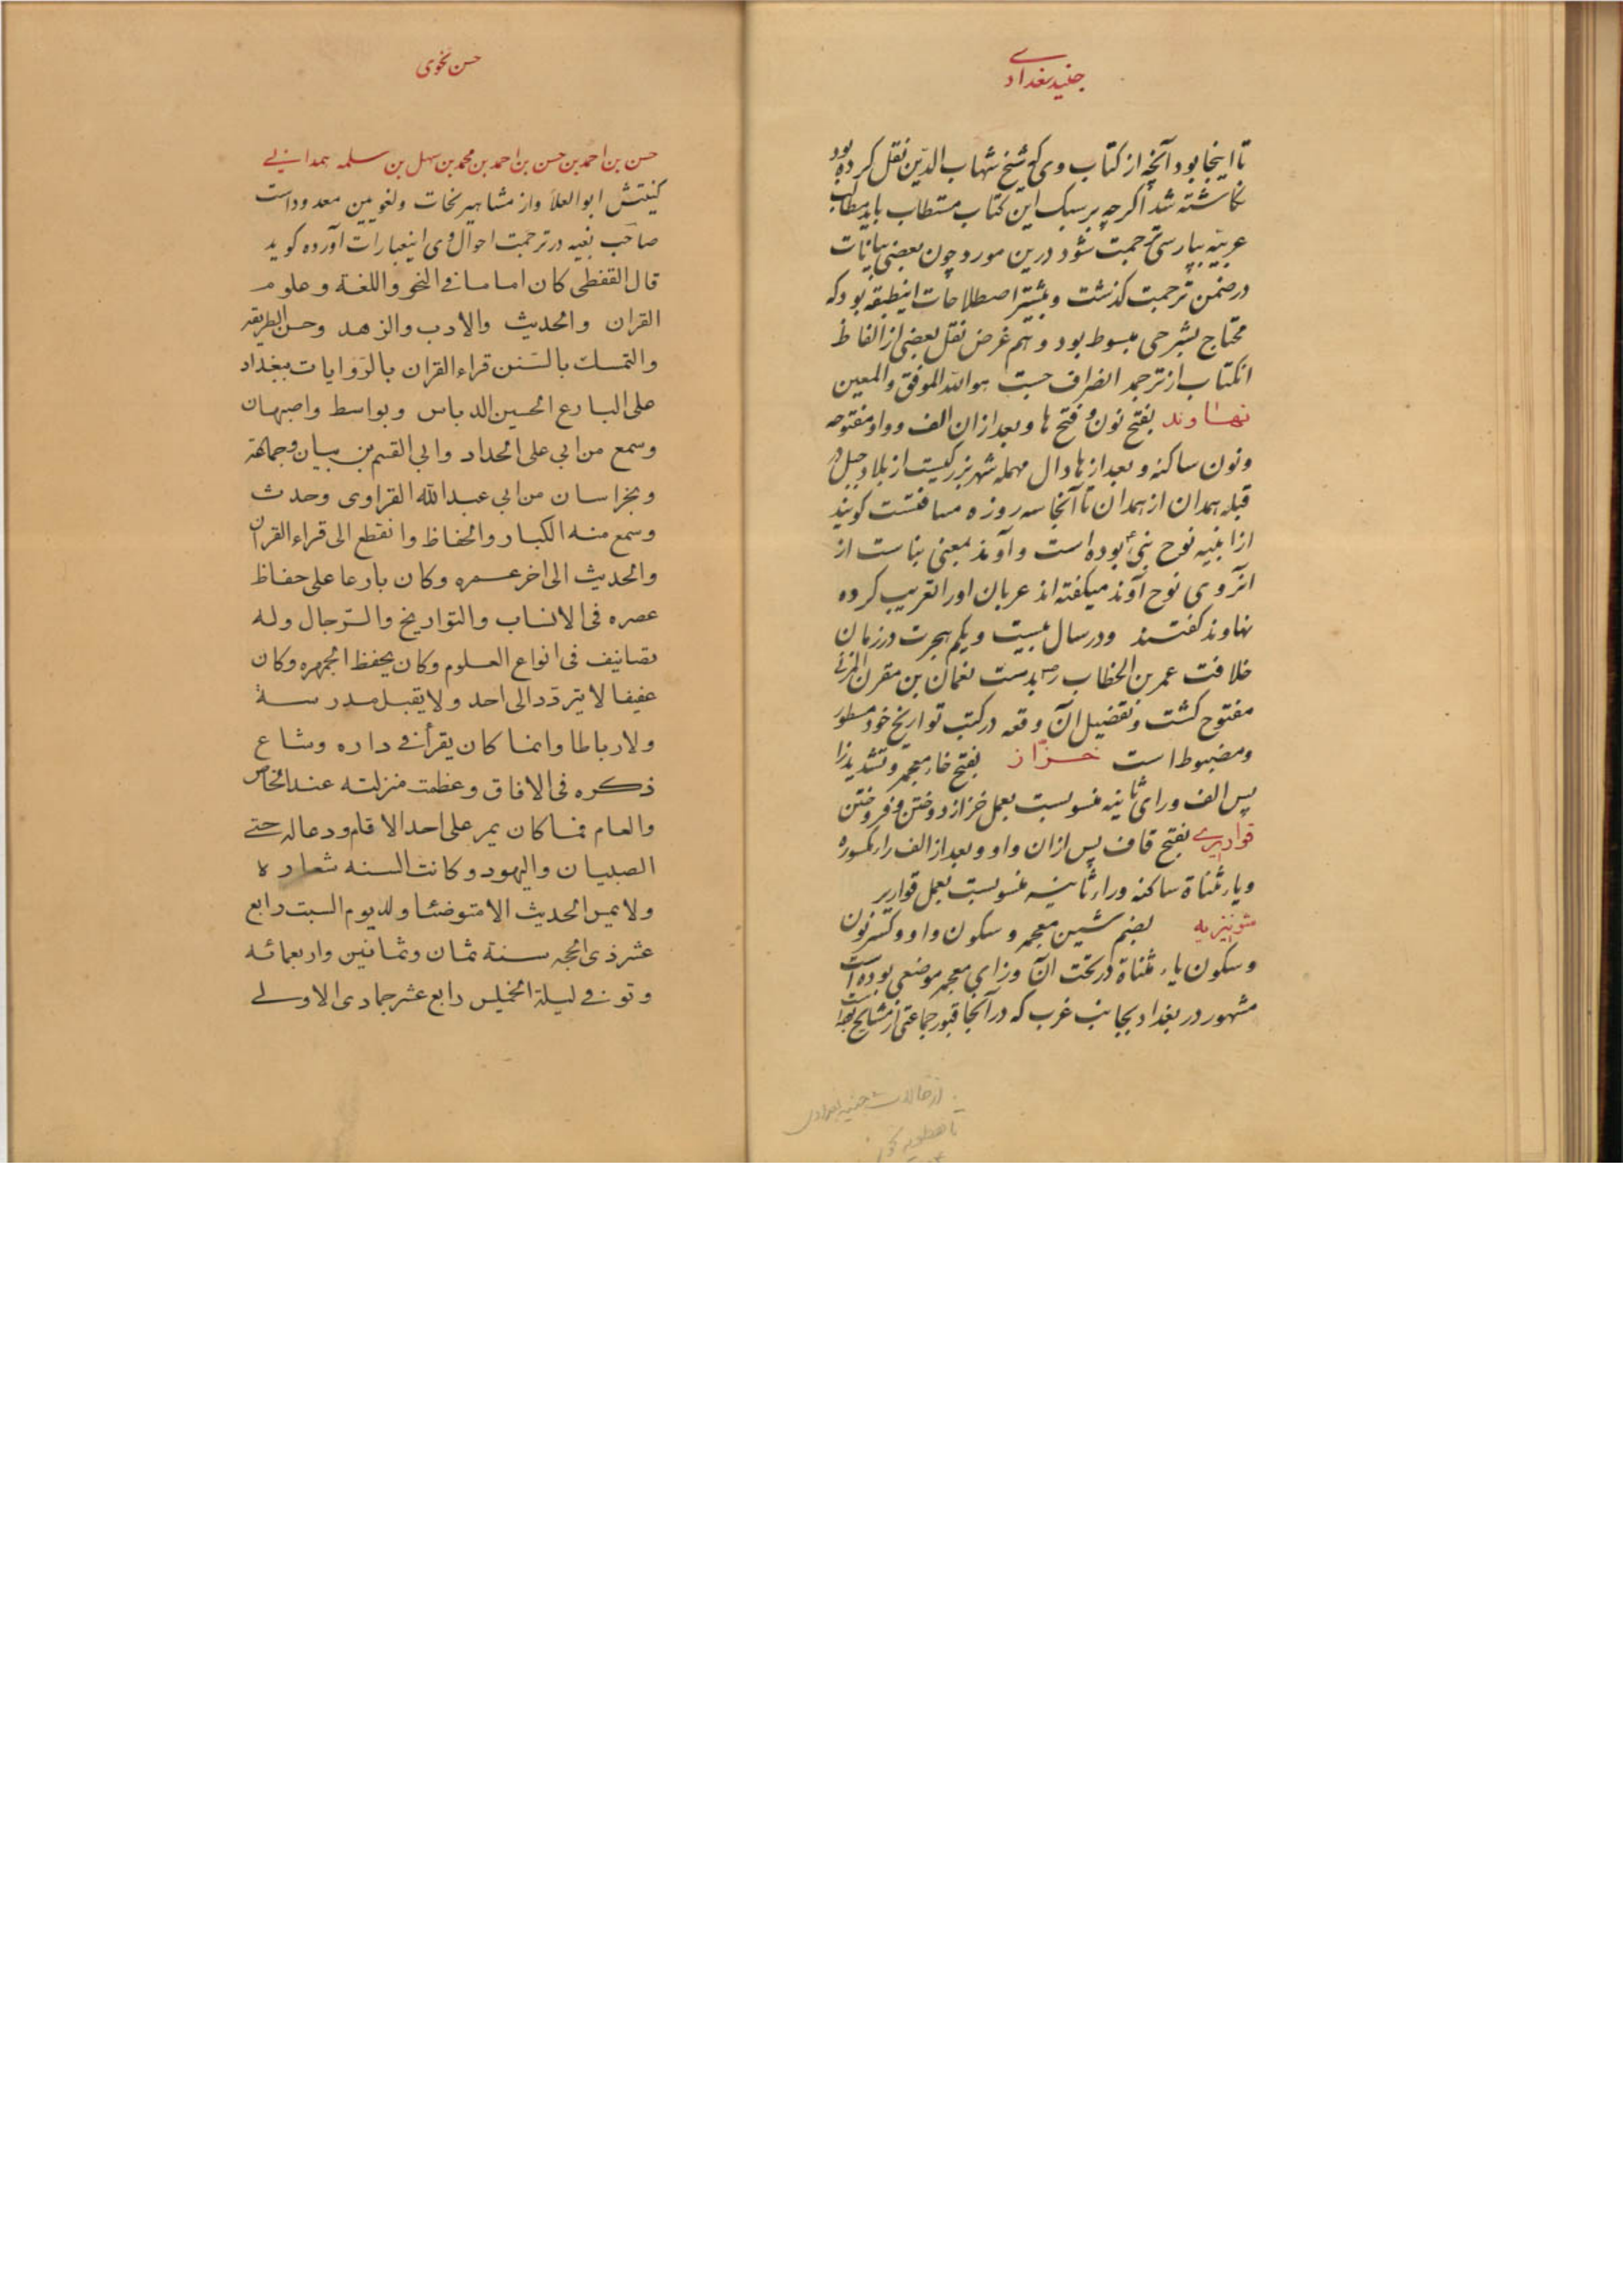 جنید بغدادی
تا اینجا بود آنچه از کتاب وی که شیخ شهاب الدین نقل کرده بود
نکاشته شد اکرچه بر سبک این کتاب مستطاب باید مطالب
عربیه بپارسی ترجمت شود درین مورد چون بعضی بیانات
در ضمن ترجمت کذشت و بیشتر اصطلاحات اینطبقه بود که
محتاج بشرحی مبسوط بود و هم غرض نقل بعضی از الفاظ
انکتاب از ترجمه انصراف جست هو الله الموفق والمعین
نهاوند بفتح نون و فتح ها و بعد از ان الف و واو مفتوحه
ونون ساکنه و بعد از ها دال مهمله شهر بزرکیست از بلاد جبل در
قبله همدان از همدان تا آنجا سه روزه مسافتست کویند
از ابنیه نوح نبی بوده است و آوند بمعنی بناست از
آنروی نوح آوند میکفته اند عربان اورا تعریب کرده
نهاوند کفتند ودر سال بیست و یکم هجرت در زمان
خلافت عمر بن الخطاب رض بدست نعمان بن مقرن المزنی
مفتوح کشت و تفصیل آن وقعه در کتب تواریخ خود مسطور
ومضبوط است خزاز بفتح خاء معجمه و تشدید زا
پس الف و رای ثانیه منسوبست بعمل خز از دوختن و فروختن
قواریری بفتح قاف پس از ان واو و بعد از الف راء مکسوره
و یاء مثناة ساکنه و راء ثانیه منسوبست بعمل قواریر
شونیزیه بضم شین معجمه و سکون واو و کسر نون
و سکون یاء مثناة در تحت آن و زای معجمه موضعی بوده است
مشهور در بغداد بجانب غرب که در آنجا قبور جماعتی از مشایخ
از حالات جنید بغدادی
حسن نحوی
حسن بن احمد بن حسن بن احمد بن محمد بن سهل بن سلمه همدانی
کنیتش ابوالعلاء واز مشاهیر نحات ولغویین معدود است
صاحب بغیه در ترجمت احوال وی اینعبارات آورده کوید
قال القفطی کان اماما فی النحو واللغة وعلوم
القران والحدیث والادب والزهد وحسن الطریقه
والتمسك بالسنن قراء القران بالروایات ببغداد
علی البارع الحسین الدباس وبواسط واصبهان
وسمع من ابی علی الحداد وابی القسم بن بیان وجماعة
وبخراسان من ابی عبد الله الفراوی وحدث
وسمع منه الکبار والحفاظ وانقطع الی قراء القران
والحدیث الی اخر عمره وکان بارعا علی حفاظ
عصره فی الانساب والتواریخ والرجال وله
تصانیف فی انواع العلوم وکان یحفظ الجمهره وکان
عفیفا لا یتردد الی احد ولا یقبل مدرسة
ولا رباطا وانما کان یقرأ فی داره وشاع
ذکره فی الافاق وعظمت منزلته عند الخاص
والعام فما کان یمر علی احد الا قام ودعا له حتی
الصبیان والیهود وکانت السنه شعاره
ولا یمس الحدیث الا متوضئا ولد یوم السبت رابع
عشر ذی الحجه سنة ثمان وثمانین واربعمائه
وتوفی لیلة الخمیس رابع عشر جمادی الاولی